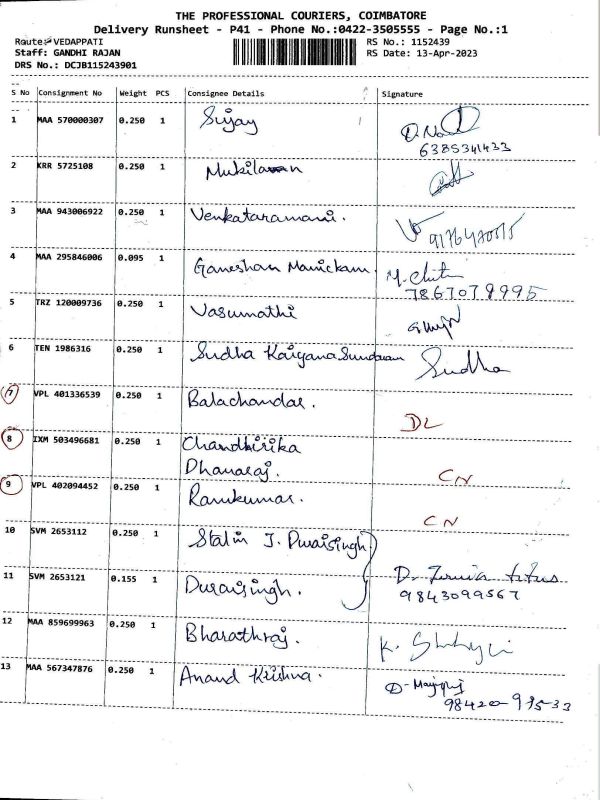 THE PROFESSIONAL COURIERS, COIMBATORE
Delivery Runsheet - P41 - Phone No.:0422-3505555 - Page No.:1
Route:- VEDAPPATI
RS No.: 1152439
Staff: GANDHI RAJAN
RS Date: 13-Apr-2023
DRS No.: DCJB115243901
S No Consignment No Weight PCS Consignee Details Signature
1 MAA 570000307 0.250 1 Sujay
6385341433
2 KRR 5725108 0.250 1 Mukilan
3 MAA 943006922 0.250 1 Venkataramani.
4 MAA 295846006 0.095 1 Ganeshan Manickam.
7867079995
5 TRZ 120009736 0.250 1 Vasumathi
6 TEN 1986316 0.250 1 Sudha Kaiyana Sundaram Sudha
7 VPL 401336539 0.250 1 Balachandar. DL
8 IXM 503496681 0.250 1 Chandhirika
Dhanaraj. CN
9 VPL 402094452 0.250 1 Ramkumar. CN
10 SVM 2653112 0.250 1 Stalin J. Duraisingh
11 SVM 2653121 0.155 1 Duraisingh.
9843099567
12 MAA 859699963 0.250 1 Bharathraj.
13 MAA 567347876 0.250 1 Anand Krishna.